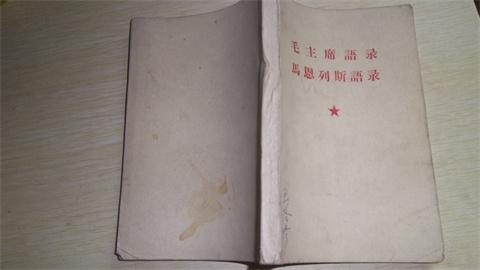 毛主席語录
馬恩列斯語录